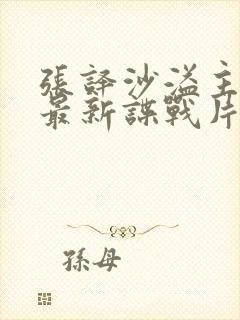 張譯沙溢主
最新諜戰片
孫母